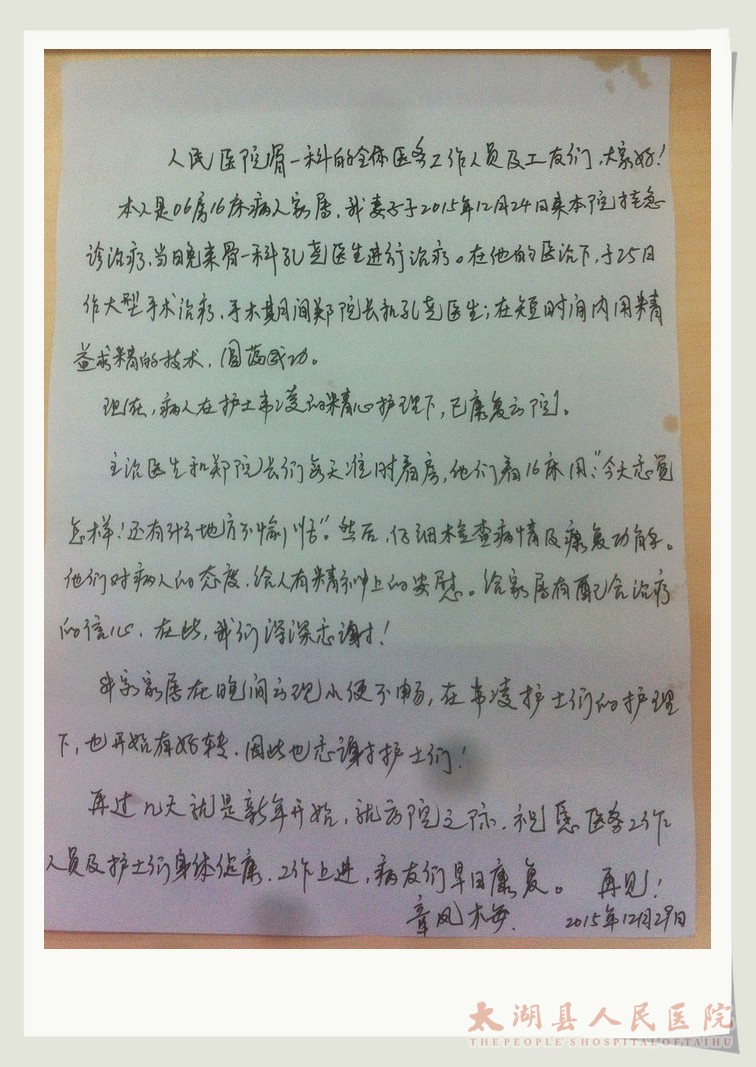 人民医院骨一科的全体医务工作人员及工友们,大家好!
本人是06房16床病人家属,我妻子于2015年12月24日来本院挂急
诊治疗,当日晚来骨一科孔亮医生进行治疗。在他的医治下,于25日
作大型手术治疗,手术其月间郑院长和孔亮医生;在短时间内用精
益求精的技术,圆满成功。
现在,病人在护士韦凌的精心护理下,已康复出院。
主治医生和郑院长们每天准时看房,他们看16床用:“今天感觉
怎样!还有什么地方不愉快”。然后,仔细检查病情及康复功能。
他们对病人的态度,给人有精神上的安慰。给家属有配合治疗
的信心,在此,我们深深感谢!
我家家属在晚间出现小便不畅,在韦凌护士们的护理
下,也开始有好转,因此也感谢护士们!
再过几天就是新年开始,就出院之际,祝愿医务工作
人员及护士们身体健康,工作上进,病友们早日康复。 再见!
章凤 2015年12月29日
太湖县人民医院
THE PEOPLE'S HOSPITAL OF TAIHU